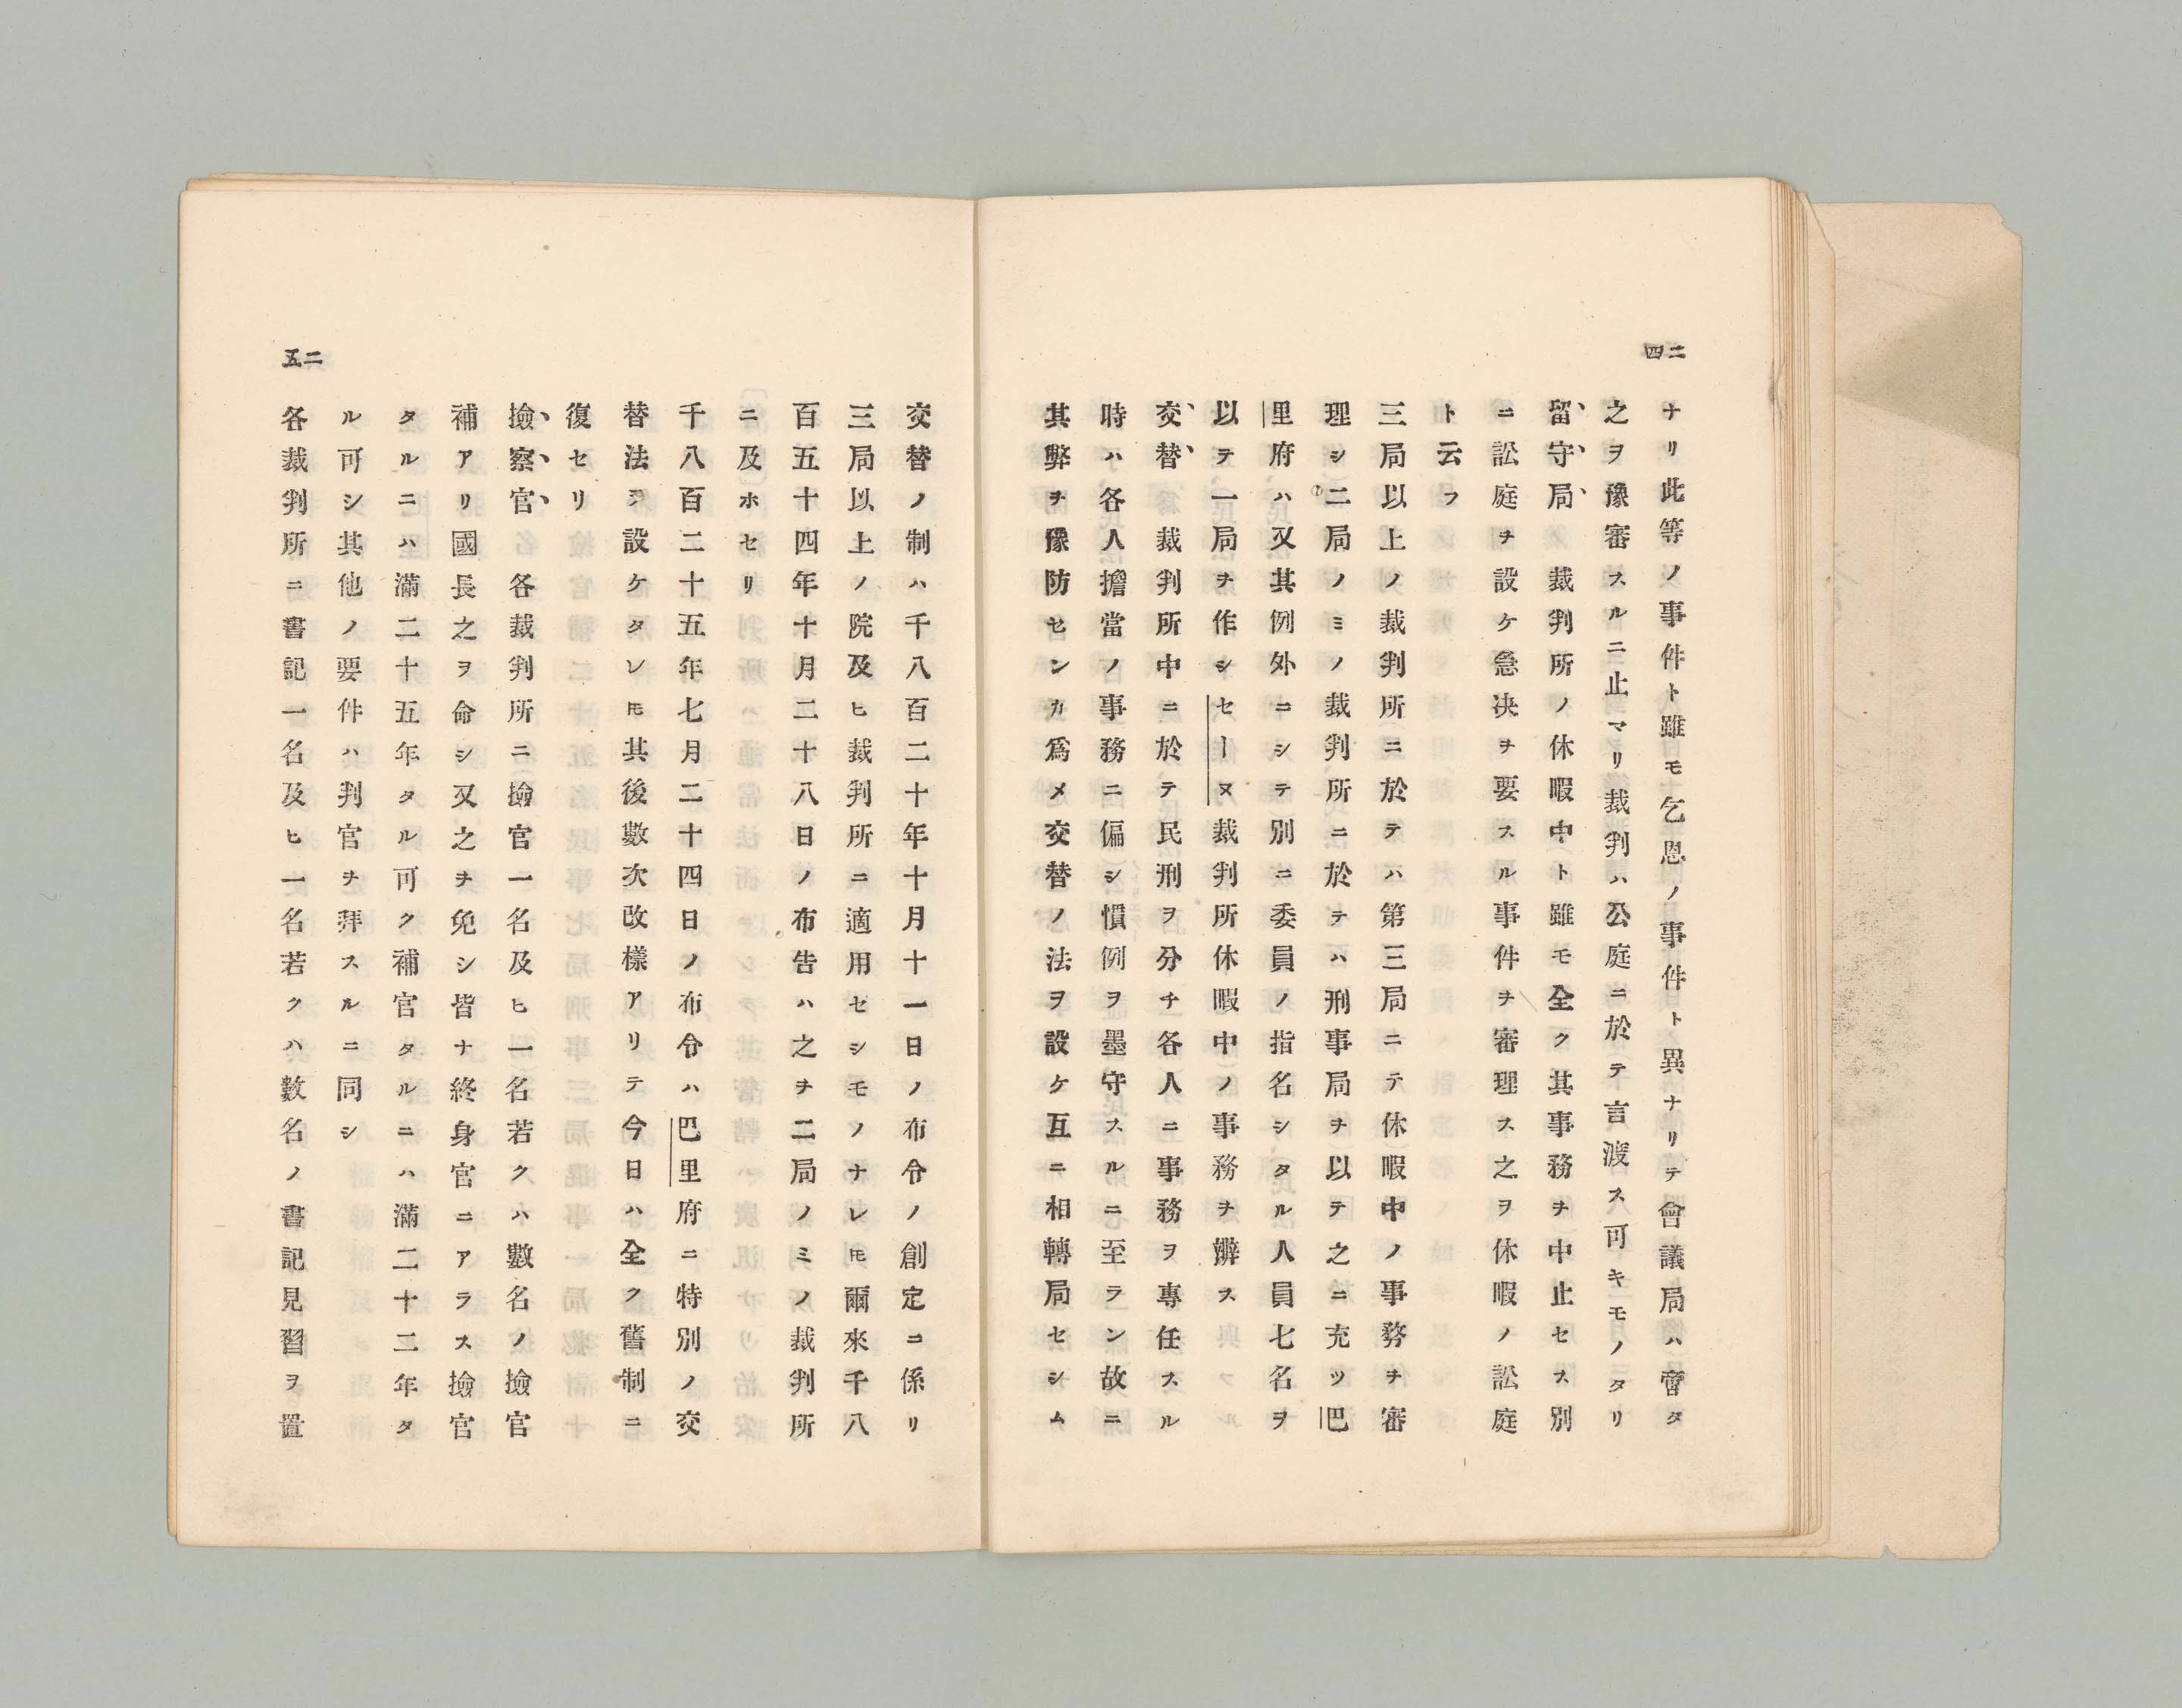 二四
ナリ此等ノ事件ト雖モ乞恩ノ事件ト異ナリテ會議局ハ啻タ
之ヲ豫審スルニ止マリ裁判ハ公庭ニ於テ言渡ス可キモノタリ
留守局 裁判所ノ休暇中ト雖モ全ク其事務ヲ中止セス別
ニ訟庭ヲ設ケ急决ヲ要スル事件ヲ審理ス之ヲ休暇ノ訟庭
ト云フ
三局以上ノ裁判所ニ於テハ第三局ニテ休暇中ノ事務ヲ審
理シ二局ノミノ裁判所ニ於テハ刑事局ヲ以テ之ニ充ツ巴
里府ハ又其例外ニシテ別ニ委員ノ指名シタル人員七名ヲ
以テ一局ヲ作シセーヌ裁判所休暇中ノ事務ヲ辦ス
交替 裁判所中ニ於テ民刑ヲ分チ各人ニ事務ヲ專任スル
時ハ各人擔當ノ事務ニ偏シ慣例ヲ墨守スルニ至ラン故ニ
其弊ヲ豫防センカ爲メ交替ノ法ヲ設ケ互ニ相轉局セシム
二五
交替ノ制ハ千八百二十年十月十一日ノ布令ノ創定ニ係リ
三局以上ノ院及ヒ裁判所ニ適用セシモノナレ𪜈爾來千八
百五十四年十月二十八日ノ布告ハ之ヲ二局ノミノ裁判所
ニ及ホセリ
千八百二十五年七月二十四日ノ布令ハ巴里府ニ特別ノ交
替法ヲ設ケタレ𪜈其後數次改樣アリテ今日ハ全ク舊制ニ
復セリ
撿察官 各裁判所ニ撿官一名及ヒ一名若クハ數名ノ撿官
補アリ國長之ヲ命シ又之ヲ免シ皆ナ終身官ニアラス撿官
タルニハ滿二十五年タル可ク補官タルニハ滿二十二年タ
ル可シ其他ノ要件ハ判官ヲ拜スルニ同シ
各裁判所ニ書記一名及ヒ一名若クハ數名ノ書記見習ヲ置